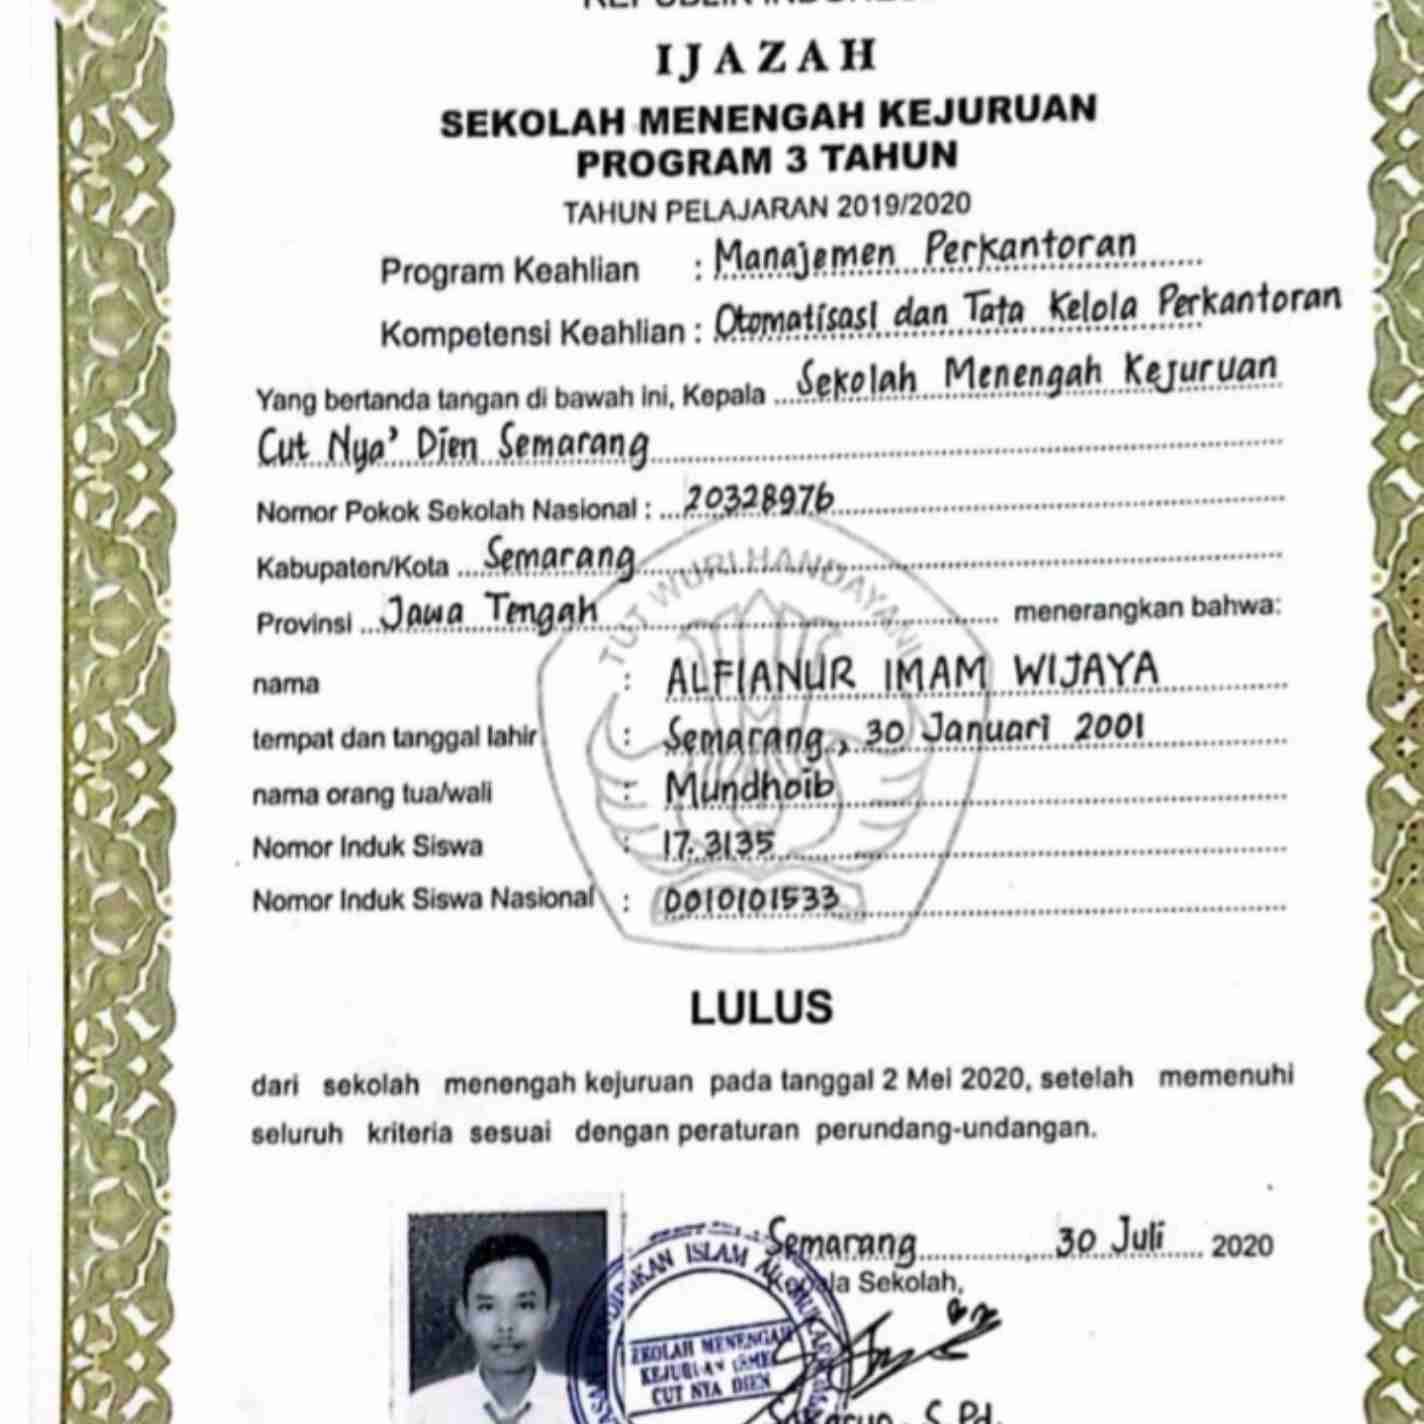 IJAZAH
SEKOLAH MENENGAH KEJURUAN
PROGRAM 3 TAHUN
TAHUN PELAJARAN 2019/2020
Program Keahlian : Manajemen Perkantoran
Kompetensi Keahlian : Otomatisasi dan Tata Kelola Perkantoran
Yang bertanda tangan di bawah ini, Kepala Sekolah Menengah Kejuruan
Cut Nya' Dien Semarang
Nomor Pokok Sekolah Nasional : 20328976
Kabupaten/Kota Semarang
TUT WURI HANDAYANI
Provinsi Jawa Tengah menerangkan bahwa:
nama : ALFIANUR IMAM WIJAYA
tempat dan tanggal lahir : Semarang, 30 Januari 2001
nama orang tua/wali : Mundhoib
Nomor Induk Siswa : 17.3135
Nomor Induk Siswa Nasional : 0010101533
LULUS
dari sekolah menengah kejuruan pada tanggal 2 Mei 2020, setelah memenuhi
seluruh kriteria sesuai dengan peraturan perundang-undangan.
Semarang, 30 Juli 2020
Kepala Sekolah,
ISLAM
SEKOLAH MENENGAH
KEJURUAN (SMK)
CUT NYA DIEN
S.Pd.